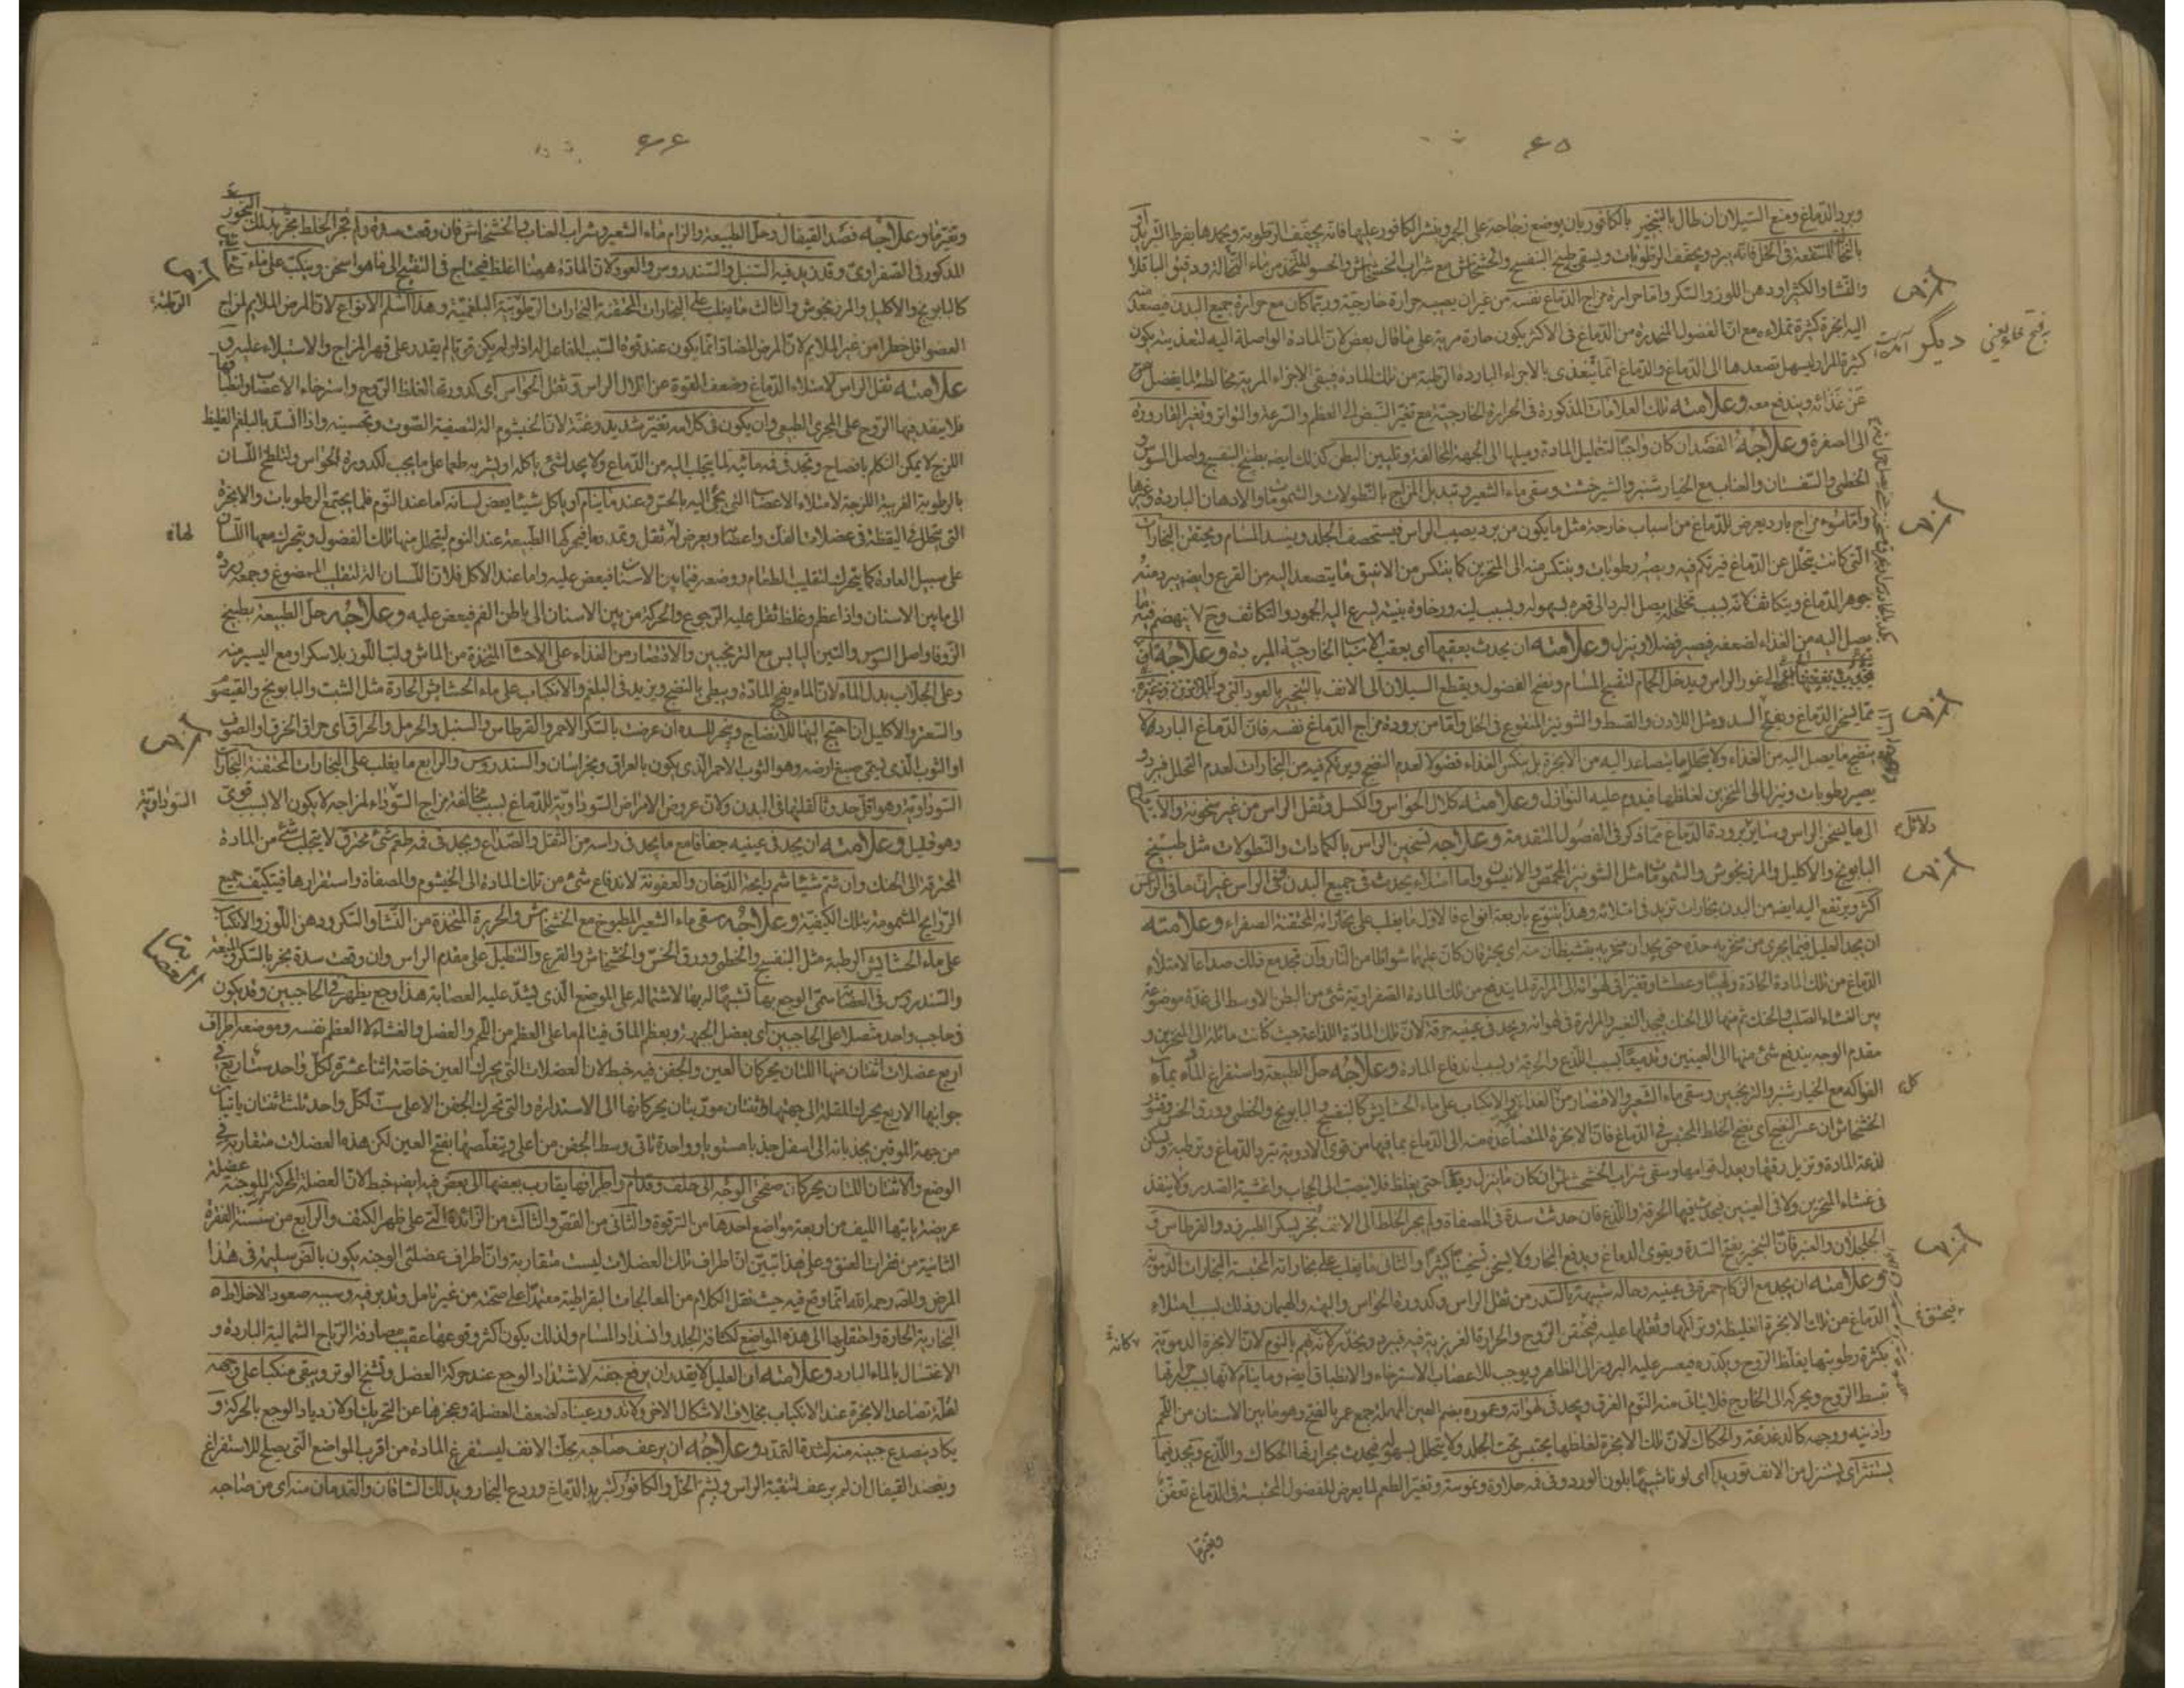 ٤٥
ويبرد الدماغ ومنع السيلان ان طال بالتبخير بالكافور بان يوضع زجاجة على الجمر وينثر الكافور عليها فانه يجفف الرطوبة ويجمدها بفرط التبريد
المستنقعة في الخل فانه يبرد ويجفف الرطوبات ويسقى طبيخ البنفسج والخشخاش مع شراب الخشخاش والحسو المتخذ من ماء النخالة ودقيق الباقلا
والنشا والكثيرا ودهن اللوز والسكر واما حرارة مزاج الدماغ نفسه من غير ان يصيبه حرارة خارجية وربما كان مع حرارة جميع البدن فيصعد
اليه ابخرة كثيرة تملاءه مع ان الفضول المنحدرة من الدماغ في الاكثر يكون حارة مرية على ما قال بعض لان المادة الواصلة اليه لتغذيته يكون
كثيرة المرار ليسهل تصعدها الى الدماغ والدماغ انما يتغذى بالاجزاء الباردة الرطبة من تلك المادة فيبقى الاجزاء المرية مخالطة لما يفضل
عن غذائه ويندفع معه وعلامته تلك العلامات المذكورة في الحرارة الخارجية مع تغير النبض الى العظم والسرعة والتواتر وتغير القارورة
الى الصفرة وعلاجه الفصد ان كان واجبا لتقليل المادة وميلها الى الجهة المخالفة وتليين البطن كذلك ايضا بطبيخ البنفسج واصل السوس
الخطمي والسفستان والعناب مع الخيارشنبر والشيرخشت وسقى ماء الشعير وتبديل المزاج بالنطولات والشمومات والادهان الباردة وغيرها
واما سوء مزاج بارد يعرض للدماغ من اسباب خارجة مثل ما يكون من برد يصيب الراس فيستحصف الجلد وينسد المسام ويحتقن البخارات
التي كانت يتحلل عن الدماغ فيرتكم فيه ويصير رطوبات وينتكس منه الى المنخرين كما ينتكس من الانبيق ما يتصعد اليه من القرع وايضا يبرد منه
جوهر الدماغ ويتكاثف لانه بسبب تخلخله يصل البرد الى قعره بسهولة وبسبب لينه ورخاوة بنيته يسرع اليه الجمود والتكاثف وح لا ينهضم فيه ما
يصل اليه من الغذاء لضعفه فيصير فضلا وينزل وعلامته ان يحدث بعقبها اى بعقب الاسباب الخارجية المبردة وعلاجه
غور الراس ويدخل الحمام لتفتيح المسام ونضج الفضول ويقطع السيلان الى الانف بالتبخير بالعود التي
مما يسخن الدماغ ويفتح السدد ومثل اللادن والقسط والشونيز المنقوع في الخل واما من برودة مزاج الدماغ نفسه فان الدماغ البارد لا
ينضج ما يصل اليه من الغذاء ولا يتحلل ما يتصاعد اليه من الابخرة بل ينكس الغذاء فضولا لعدم النضج ويرتكم فيه من البخارات لعدم التحلل فيبرد و
يصير رطوبات وينزل الى المنخرين لغلظها فيدوم عليه النوازل وعلامته كلال الحواس والكسل وثقل الراس من غير سخونة
الى ما يسخن الراس وساير برودة الدماغ مما ذكر في الفصول المتقدمة وعلاجه تسخين الراس بالكمادات والنطولات مثل طبيخ
البابونج والاكليل والمرزنجوش والشمومات مثل الشونيز المحمص والانيسون واما امتلاء يحدث في جميع البدن وفي الراس غير ان ما في الراس
اكثر ويرتفع اليه ايضا من البدن بخارات تزيد في امتلائه وهذا يتنوع باربعة انواع فالاول ما يغلب على بخاراته المحتقنة الصفراء وعلامته
ان يجد العليل فيما يجرى من منخريه حدة حتى يجد ان منخريه ينشيطان منه اى يحترقان كان عليهما شواظا من النار وان تجد مع ذلك صداعا لامتلاء
الدماغ من تلك المادة الحادة ولهيبا وعطشا وتغيرا في لهواته الى المرارة لما يندفع من تلك المادة الصفراوية شئ من البطن الاوسط الى غدة موضوعة
بين الغشاء الصلب والحنك ثم منها الى الحنك فيجد التغير والمرارة في لهواته ويجد في عينيه حرقة لان تلك المادة اللذاعة حيث كانت مائلة الى المنخرين و
مقدم الوجه يندفع شئ منها الى العينين وتدميعا بسبب اللذع والحرقة وبسبب اندفاع المادة وعلاجه حل الطبيعة واستفراغ المادة بماء
الفواكه مع الخيارشنبر والترنجبين وسقى ماء الشعير والاقتصار من الغذاء والانكباب على ماء الحشايش كالبنفسج والبابونج والخطمي وورق الخس وقشور
الخشخاش ان عسر النضج اى نضج الخلط المحتبس في الدماغ فان الابخرة المتصاعدة منه الى الدماغ بما فيها من قوى الادوية تبرد الدماغ وترطبه ويسكن
لذعة المادة وتزيل رقتها ويعدل قوامها وسقى شراب الخشخاش ان كان ما ينزل رقيقا حتى يغلظ فلا ينصب الى الحجاب واغشية الصدر ولا ينفذ
في غشاء المنخرين ولا في العينين فيحدث فيها الحرقة واللذع فان حدث سدة في المصفاة ولم يجر الخلط الى الانف بخر بسكر الطبرزد والقرطاس
الجلجلان والعنبر فان التبخير يفتح السدة ويقوى الدماغ ويدفع البخار ولا يسخن تسخينا كثيرا والثاني ما يغلب على بخاراته المحتبسة البخارات الدموية
وعلامته ان يجد مع الزكام حمرة في عينيه وحالة شبيهة بالسدر من ثقل الراس وكدورة الحواس والبهتة والهيمان وذلك بسبب امتلاء
الدماغ من تلك الابخرة الغليظة وتراكمها وثقلها عليه فيختنق الروح والحرارة الغريزية فيه فيبرد ويخدر كانه يهم بالنوم لان الابخرة الدموية
بكثرة رطوبتها يغلظ الروح ويكدره فيعسر عليه البروز الى الظاهر ويوجب للاعصاب الاسترخاء والانطباق ايضا وما ينام لانها بسبب حرارتها
تبسط الروح ويحركه الى الخارج فلا يتاتى منه النوم الغرق ويجد في لهواته وعموره بضم العين المهملة جمع عمر بالفتح وهو ما بين الاسنان من اللحم
واذنيه ووجهه كالدغدغة والحكاك لان تلك الابخرة لغلظها يحتبس تحت الجلد ولا يتحلل بسهولة فيحدث بحرارتها الحكاك واللذع ويجد فيما
يستنثر اى يستنزل من الانف توريدا اى لونا شبيها بلون الورد وفي فمه حلاوة ونموسة وتغير الطعم لما يعرض للفضول المحتبسة في الدماغ تعفن
وتغيرها
ديگر
دلائل
كل
٤٦
وتغيرها وعلاجه فصد القيفال وحل الطبيعة والزام ماء الشعير وشراب العناب والخشخاش فان وقعت سدة ولم يجر الخلط بخر بذلك البخور
المذكور في الصفراوى وقد يزيد فيه السنبل والسندروس والعود لان المادة ههنا اغلظ فيحتاج في التفتيح الى ما هو اسخن وينكب على ماء
كالبابونج والاكليل والمرزنجوش والثالث ما يغلب على البخارات المحتقنة البخارات الرطوبية البلغمية وهذا اسلم الانواع لان المرض الملايم لمزاج
العضو اقل خطرا من غير الملايم لان المرض المضاد انما يكون عند قوة السبب الفاعل له اذ لو لم يكن قويا لم يقدر على قهر المزاج والاستيلاء عليه و
علامته ثقل الراس لامتلاء الدماغ وضعف القوة عن اقلال الراس وثقل الحواس اى كدورتها لغلظ الروح واسترخاء الاعصاب وانطباقها
فلا ينفذ فيها الروح على المجرى الطبيعي وان يكون في كلامه تغير شديد وغنة لان الخيشوم آلة لتصفية الصوت وتحسينه واذا انسد بالبلغم الغليظ
اللزج لا يمكن التكلم بافصاح وتجد في فمه مائية لما يتحلب اليه من الدماغ ولا يجد لشئ ياكله او يشربه طعما على ما يجب لكدورة الحواس ولتلطخ اللسان
بالرطوبة الغريبة اللزجة لامتلاء الاعصاب التي يجئ اليه بالحس وعند ما ينام او ياكل شيئا يعض لسانه اما عند النوم فلما يجتمع الرطوبات والابخرة
التي يتحلل في اليقظة في عضلات الفك واعصابها ويعرض لها ثقل وتمدد ما فيحركها الطبيعة عند النوم ليتحلل منها تلك الفضول ويتحرك معها اللسان
على سبيل العادة كما يتحرك لتقليب الطعام ووضعه فيما بين الاسنان فيعض عليه واما عند الاكل فلان اللسان آلة لتقليب الممضوغ وجمعه ورده
الى ما بين الاسنان واذا عظم وغلظ ثقل عليه الرجوع والحركة من بين الاسنان الى باطن الفم فيعض عليه وعلاجه حل الطبيعة بطبيخ
الزوفا واصل السوس والتين اليابس مع الترنجبين والاقتصار من الغذاء على الاحساء المتخذة من الماش ولب اللوز بلا سكر او مع اليسير منه
وعلى الجلاب بدل الماء لان الماء يفج المادة ويبطى بالنضج ويزيد في البلغم والانكباب على ماء الحشايش الحارة مثل الشبت والبابونج والقيصوم
والسعتر والاكليل ان احتيج اليها للانضاج ويبخر للسدة ان عرضت بالسكر الاحمر والقرطاس والسنبل والحرمل والحراق اى حراق الخرق او الصوف
او الثوب الذي يسمى صبغ ارضه وهو الثوب الاحمر الذي يكون بالعراق وبخراسان والسندروس والرابع ما يغلب على البخارات المحتقنة البخارات
السوداوية وهو اقل حدوثا لقلتها في البدن ولان عروض الامراض السوداوية للدماغ بسبب مخالفة مزاج السوداء لمزاجه لا يكون الا لسبب قوى
وهو قليل وعلامته ان يجد في عينيه جفافا مع ما يجد في راسه من الثقل والصداع ويجد في فمه طعم شئ محترق لا يتحلب شئ من المادة
المحترقة الى الحنك وان شم شيئا شم رايحة الدخان والعفونة لاندفاع شئ من تلك المادة الى الخيشوم والمصفاة واستقرارها فيتكيف جميع
الروايح المشمومة بتلك الكيفية وعلاجه سقى ماء الشعير المطبوخ مع الخشخاش والحريرة المتخذة من النشا والسكر ودهن اللوز والانكباب
على ماء الحشايش الرطبة مثل البنفسج والخطمي وورق الخس والخشخاش والقرع والتنطيل على مقدم الراس وان وقعت سدة بخر بالسكر والميعة
والسندروس في العصابة سمى الوجع بها تشبيها له بها لاشتماله على الموضع الذي يشد عليه العصابة هذا وجع يظهر في الحاجبين وقد يكون
في حاجب واحد متصلا على الحاجبين اى بعضل الجبهة وبعظم الماق فيتالم ما على العظم من اللحم والعضل والغشاء لا العظم نفسه وموضعه اطراف
اربع عضلات اثنتان منها اللتان يحركان العين والجفن فيه خبط لان العضلات التي يحرك العين خاصة اثنا عشرة لكل واحد ست اربع في
جوانبها الاربع يحرك المقلة الى جهتها واثنتان موربتان يحركانها الى الاستدارة والتي تحرك الجفن الاعلى ست لكل واحد ثلث اثنتان ياتيان
من جهة الموقين يجذبانه الى اسفل جذبا مستويا وواحدة تاتى وسط الجفن من اعلى ويتقلصها يفتح العين لكن هذه العضلات متقاربة في
الوضع والاثنتان اللتان يحركان صفحتى الوجه الى خلف وقدام واطرافها يقارب بعضها الى بعض فيه ايضا خبط لان العضلة المحركة للوجنة عضلة
عريضة ياتيها الليف من اربعة مواضع احدها من الترقوة والثاني من القص والثالث من الزائدة التي على ظهر الكتف والرابع من سنسنة الفقرة
الثانية من فقرات العنق وعلى هذا تبين ان اطراف تلك العضلات ليست متقاربة وان اطراف عضلتى الوجنة يكون بالقص سليمة في هذا
المرض والمصـ رحمه الله انما وقع فيه حيث نقل الكلام من المعالجات البقراطية معتمدا على صحته من غير تامل وتدبر فيه وسببه صعود الاخلاط
البخارية الحارة واحتقانها الى هذه المواضع لكثافة الجلد وانسداد المسام ولذلك يكون اكثر وقوعها عقيب مصادفة الرياح الشمالية الباردة و
الاغتسال بالماء البارد وعلامته ان العليل لا يقدر ان يرفع جفنه لاشتداد الوجع عند حركة العضل وتشنج الوتر ويبقى منكبا على وجهه
لقلة تصاعد الابخرة عند الانكباب بخلاف الاشكال الاخر ولا تدور عيناه لضعف العضلة وعجزها عن التحريك ولازدياد الوجع بالحركة و
يكاد ينصدع جبينه منه لشدة التمدد وعلاجه ان يرعف صاحبه بحك الانف ليستفرغ المادة من اقرب المواضع التي يصلح للاستفراغ
ويفصد القيفال ان لم يرعف لتنقية الراس ويشم الخل والكافور لتبريد الدماغ وردع البخار ويدلك الساقان والقدمان منه اى من صاحبه
الرطبة
لهاة
السوداوية
العصابة